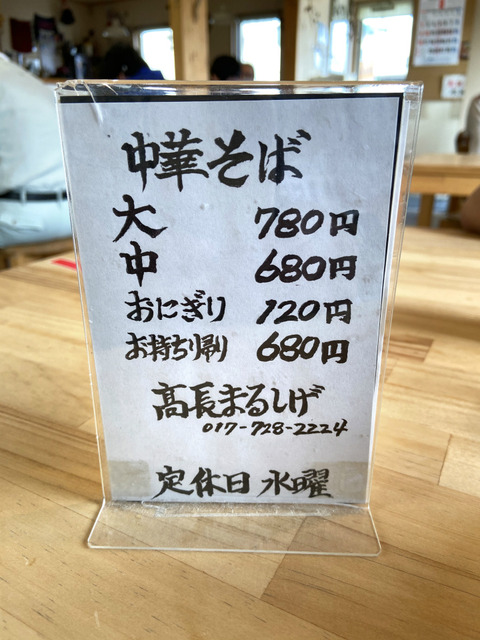 中華そば
大 780円
中 680円
おにぎり 120円
お持ち帰り 680円
高長まるしげ
017-728-2224
定休日 水曜